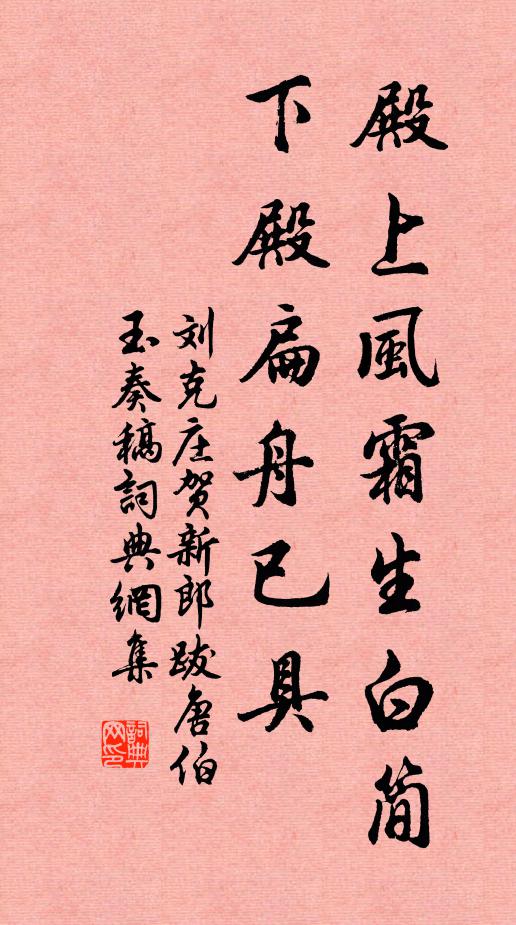 殿上風霜生白简
下殿扁舟已具
刘克庄贺新郎跋唐伯
玉奏稿詞典網集
詞典网印